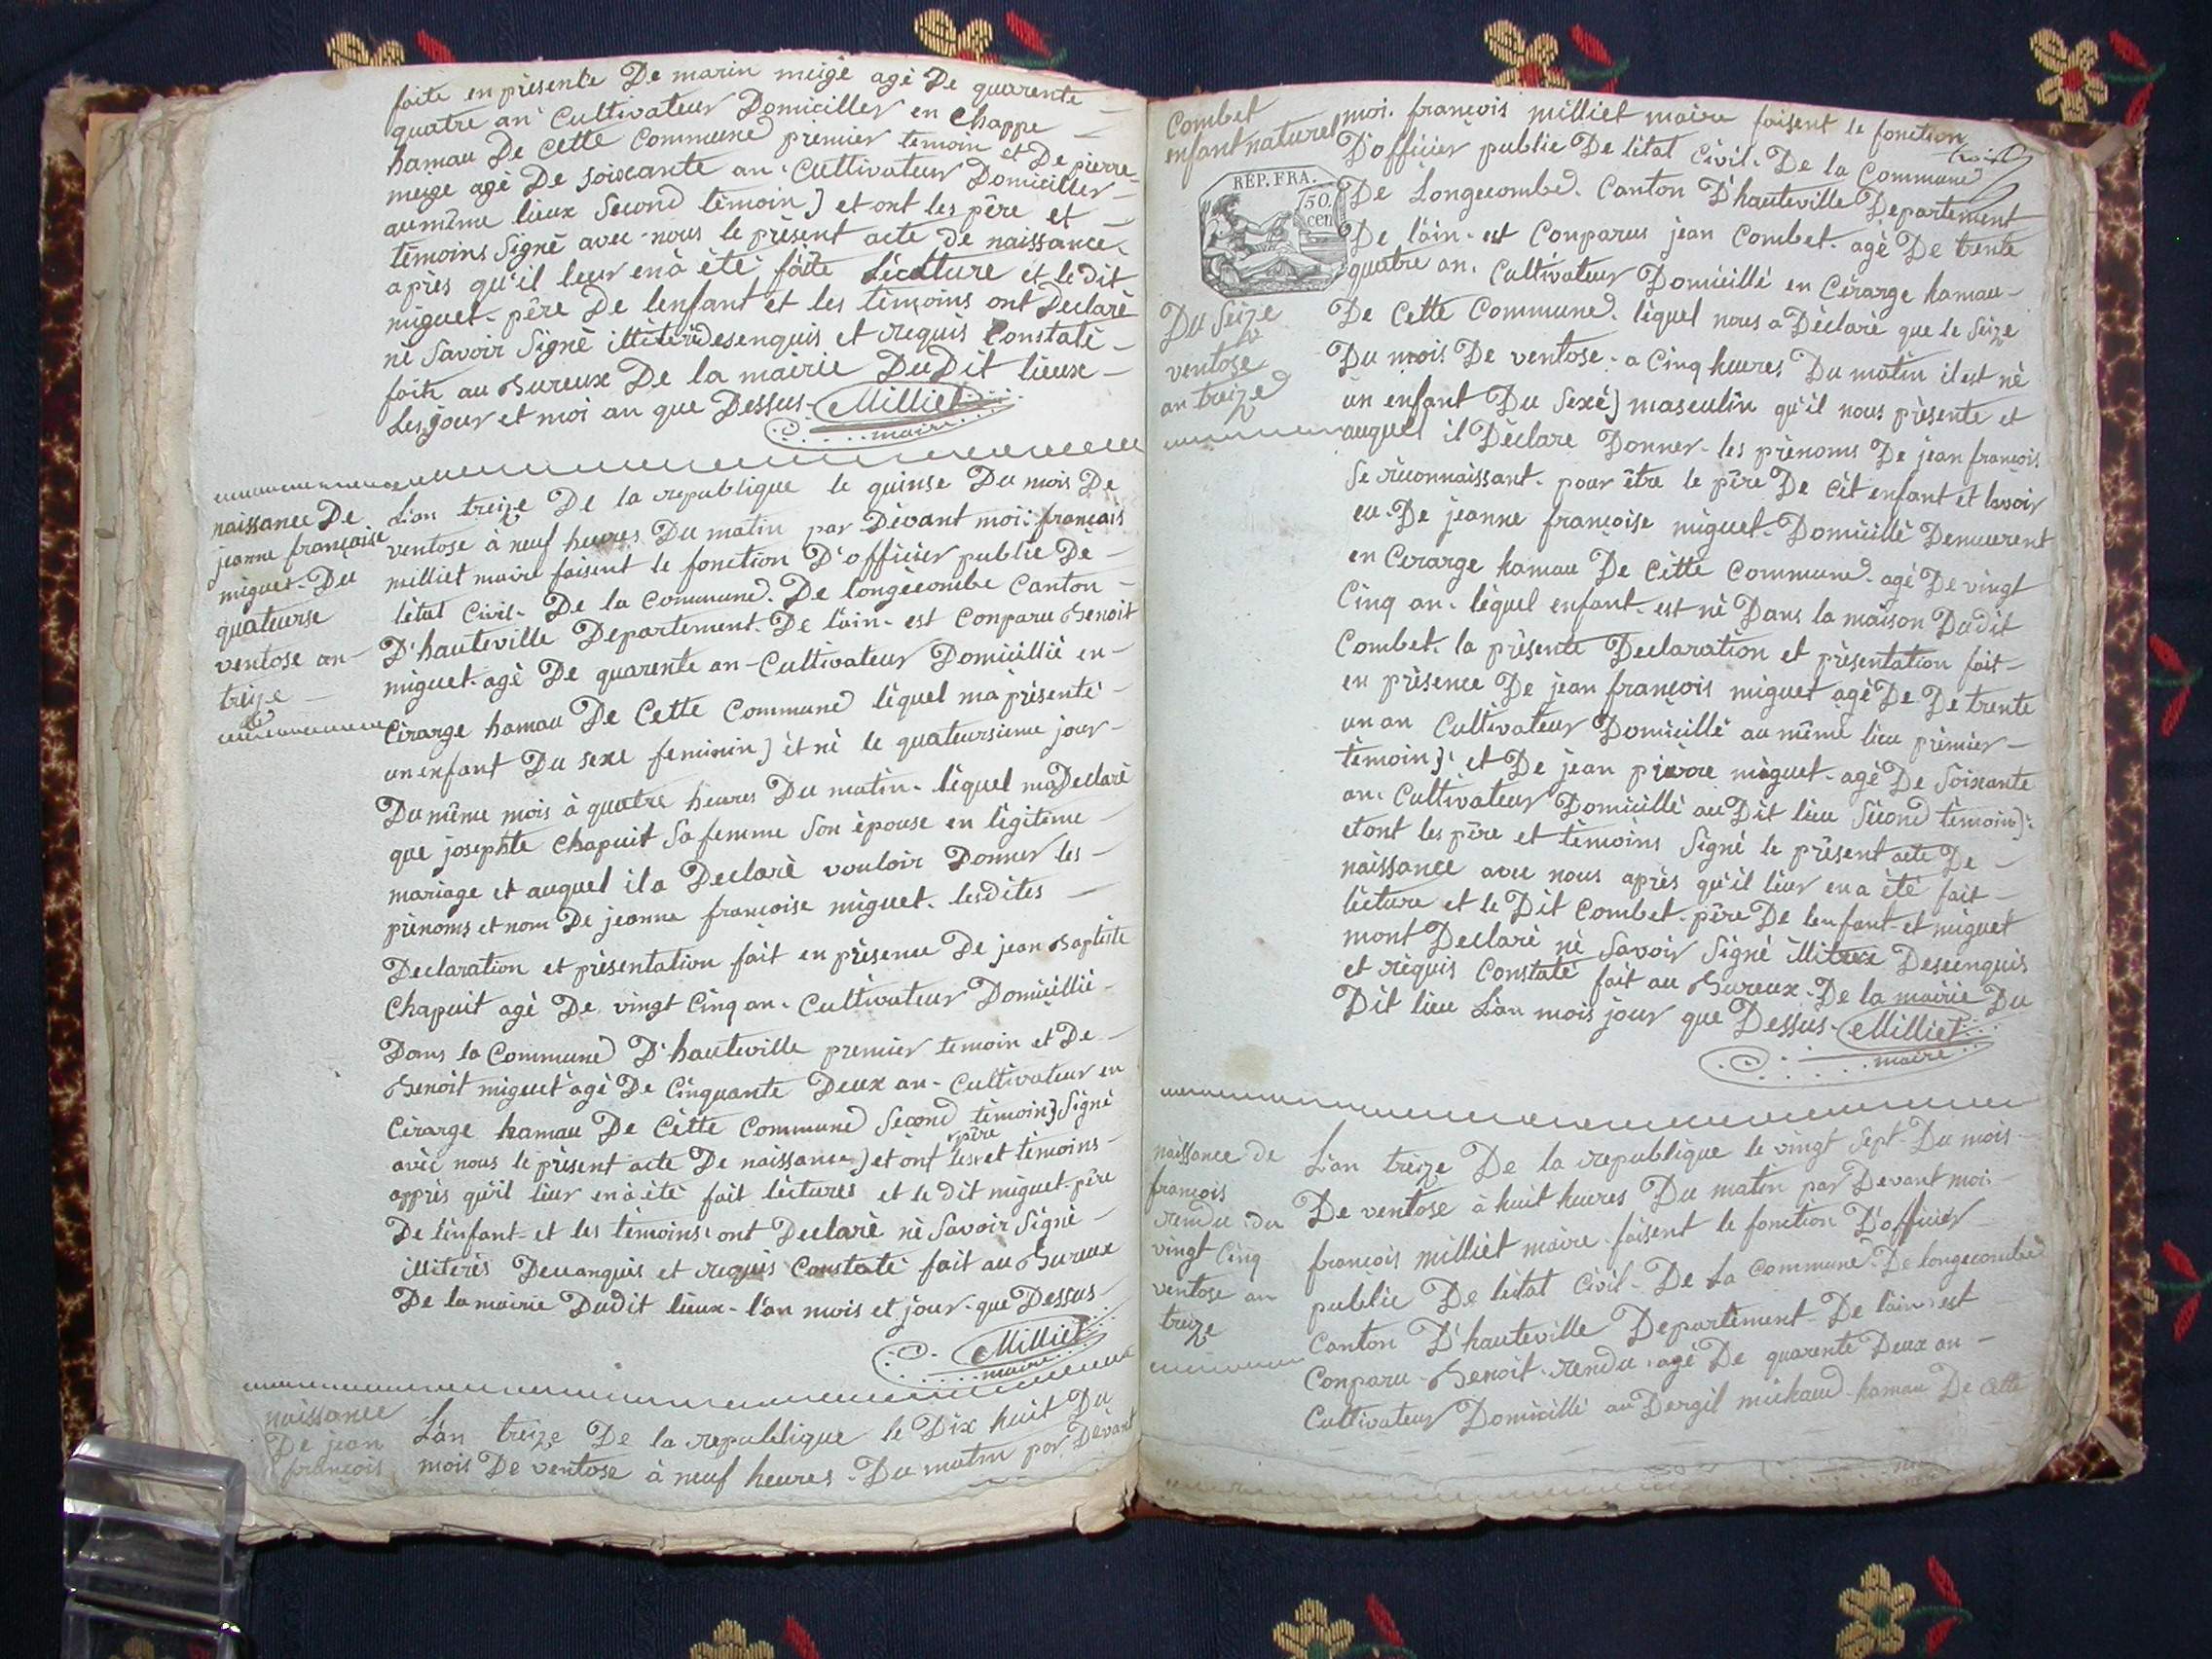 faite en présente De marin meige agé De quarente
quatre an Cultivateur Domicilier en Chappe
hamau De cette Commune premier temoin et De pierre
meige agé De soixante an Cultivateur Domicilier
au même lieux Second témoin) et ont les père et
témoins Signé avec nous le présent acte de naissance
après qu'il leur en à été faite Lécture et le dit
miguet père De lenfant et les témoins ont Declaré
né Savoir Signé desenquis et requis Constaté
faite au Bureux De la mairie DuDit lieux
Les jour et moi an que Dessus Milliet
maire
naissance De
jeanne française
miguet Du
quateurse
ventose an
treize
L'an treize De la republique le quinse Du mois De
ventose à neuf heures Du matin par Dévant moi françois
milliet maire faisent le fonction D'officier public De
létat Civil De la Commune De longecombe Canton
D'hauteville Departement De l'ain est Conparu Benoit
miguet agé De quarente an Cultivateur Domicillié en
Cérarge hamau De Cette Commune léquel ma présenté
un enfant Du sexe feminin) èt né le quateursieme jour
Du même mois à quatre heures Du matin léquel ma Declaré
que josephte Chapuit Sa femme Son épouse en légitime
mariage et auquel il a Declaré vouloir Donner les
prénoms et nom De jeanne françoise miguet lesdites
Declaration et présentation fait en présence De jean Baptiste
Chapuit agé De vingt Cinq an Cultivateur Domicillié
Dans la Commune D'hauteville premier temoin et De
Benoit miguet agé De Cinquante Deux an Cultivateur en
Cérarge hamau De Cétte Commune Second témoin) Signé
avéc nous le présent acte De naissance) et ont les père et témoins
apprès qu'il leur en à été fait léctures et le dit miguet père
De l'enfant et les témoins ont Declaré né Savoir Signé
illiterés et requis Constaté fait au Bureux
De la mairie Dudit lieux l'an mois et jour que Dessus
Milliet
maire
naissance
De jean
françois
L'an treize De la republique le Dix huit Du
mois De ventose à neuf heures Du matin par Dévant
Combet
enfant naturel
REP. FRA.
750.
cen
Du Seize
ventose
an treize
moi françois milliet maire faisent le fonction
D'officier public De létat Civil De la Commune
De Longecombe Canton D'hauteville Departement
De l'ain est Conparus jean Combet agé De trente
quatre an Cultivateur Domicillé en Cérarge hamau
De Cette Commune léquel nous a Déclaré que le Seize
Du mois De ventose a Cinq heures Du matin il est né
un enfant Du Sexé) masculin qu'il nous présente et
auquel il Déclare Donner les prénoms De jean françois
Se réconnaissant pour être le père De cét enfant et lavoir
eu De jeanne françoise miguet Domicillé Demeurent
en Cerarge hamau De Cétte Commune agé De vingt
Cinq an léquel enfant est né Dans la maison Dudit
Combet la présente Declaration et présentation fait
en présence De jean françois miguet agé De De trente
un an Cultivateur Domicillé au même lieu prémier
témoin) et De jean pierre miguet agé De Soixante
an Cultivateur Domicillé au Dit lieu Sécond témoin)
et ont les père et témoins Signé le présent acte De
naissance avec nous après qu'il leur en a été fait
lécture et le Dit Combet père De lenfant et miguet
mont Declaré né Savoir Signé
et réquis Constaté fait au Bureux De la mairie Du
Dit lieu L'an mois jour que Dessus Milliet
maire
naissance de
françois
rendu du
vingt Cinq
ventose an
treize
L'an treize De la republique le vingt Sept Du mois
De ventose à huit heures Du matin par Devant moi
françois milliet maire faisent le fonction D'officier
public De létat Civil De La Commune De longecombe
Canton D'hauteville Departement De l'ain est
Conparu Benoit rendu agé De quarente Deux an
Cultivateur Domicillé au Dergil michaud hamau De Cette